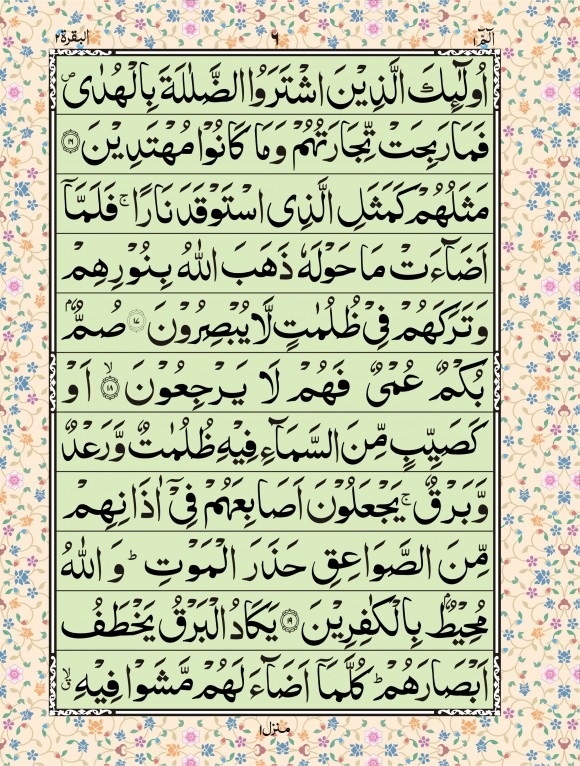 الٓمّٓ ١ ٦ البقرة ٢
اُولٰٓئِكَ الَّذِيْنَ اشْتَرَوُا الضَّلٰلَةَ بِالْهُدٰى ۪
فَمَا رَبِحَتْ تِّجَارَتُهُمْ وَمَا كَانُوْا مُهْتَدِيْنَ ﴿۱۶﴾
مَثَلُهُمْ كَمَثَلِ الَّذِى اسْتَوْقَدَ نَارًا ۚ فَلَمَّاۤ
اَضَآءَتْ مَا حَوْلَهٗ ذَهَبَ اللّٰهُ بِنُوْرِهِمْ
وَتَرَكَهُمْ فِىْ ظُلُمٰتٍ لَّا يُبْصِرُوْنَ ﴿۱۷﴾ صُمٌّۢ
بُكْمٌ عُمْىٌ فَهُمْ لَا يَرْجِعُوْنَ ۙ﴿۱۸﴾ اَوْ
كَصَيِّبٍ مِّنَ السَّمَآءِ فِيْهِ ظُلُمٰتٌ وَّرَعْدٌ
وَّبَرْقٌ ۚ يَجْعَلُوْنَ اَصَابِعَهُمْ فِىْۤ اٰذَانِهِمْ
مِّنَ الصَّوَاعِقِ حَذَرَ الْمَوْتِ ؕ وَ اللّٰهُ
مُحِيْطٌۢ بِالْكٰفِرِيْنَ ﴿۱۹﴾ يَكَادُ الْبَرْقُ يَخْطَفُ
اَبْصَارَهُمْ ؕ كُلَّمَاۤ اَضَآءَ لَهُمْ مَّشَوْا فِيْهِ ۙۗ
منزل ١